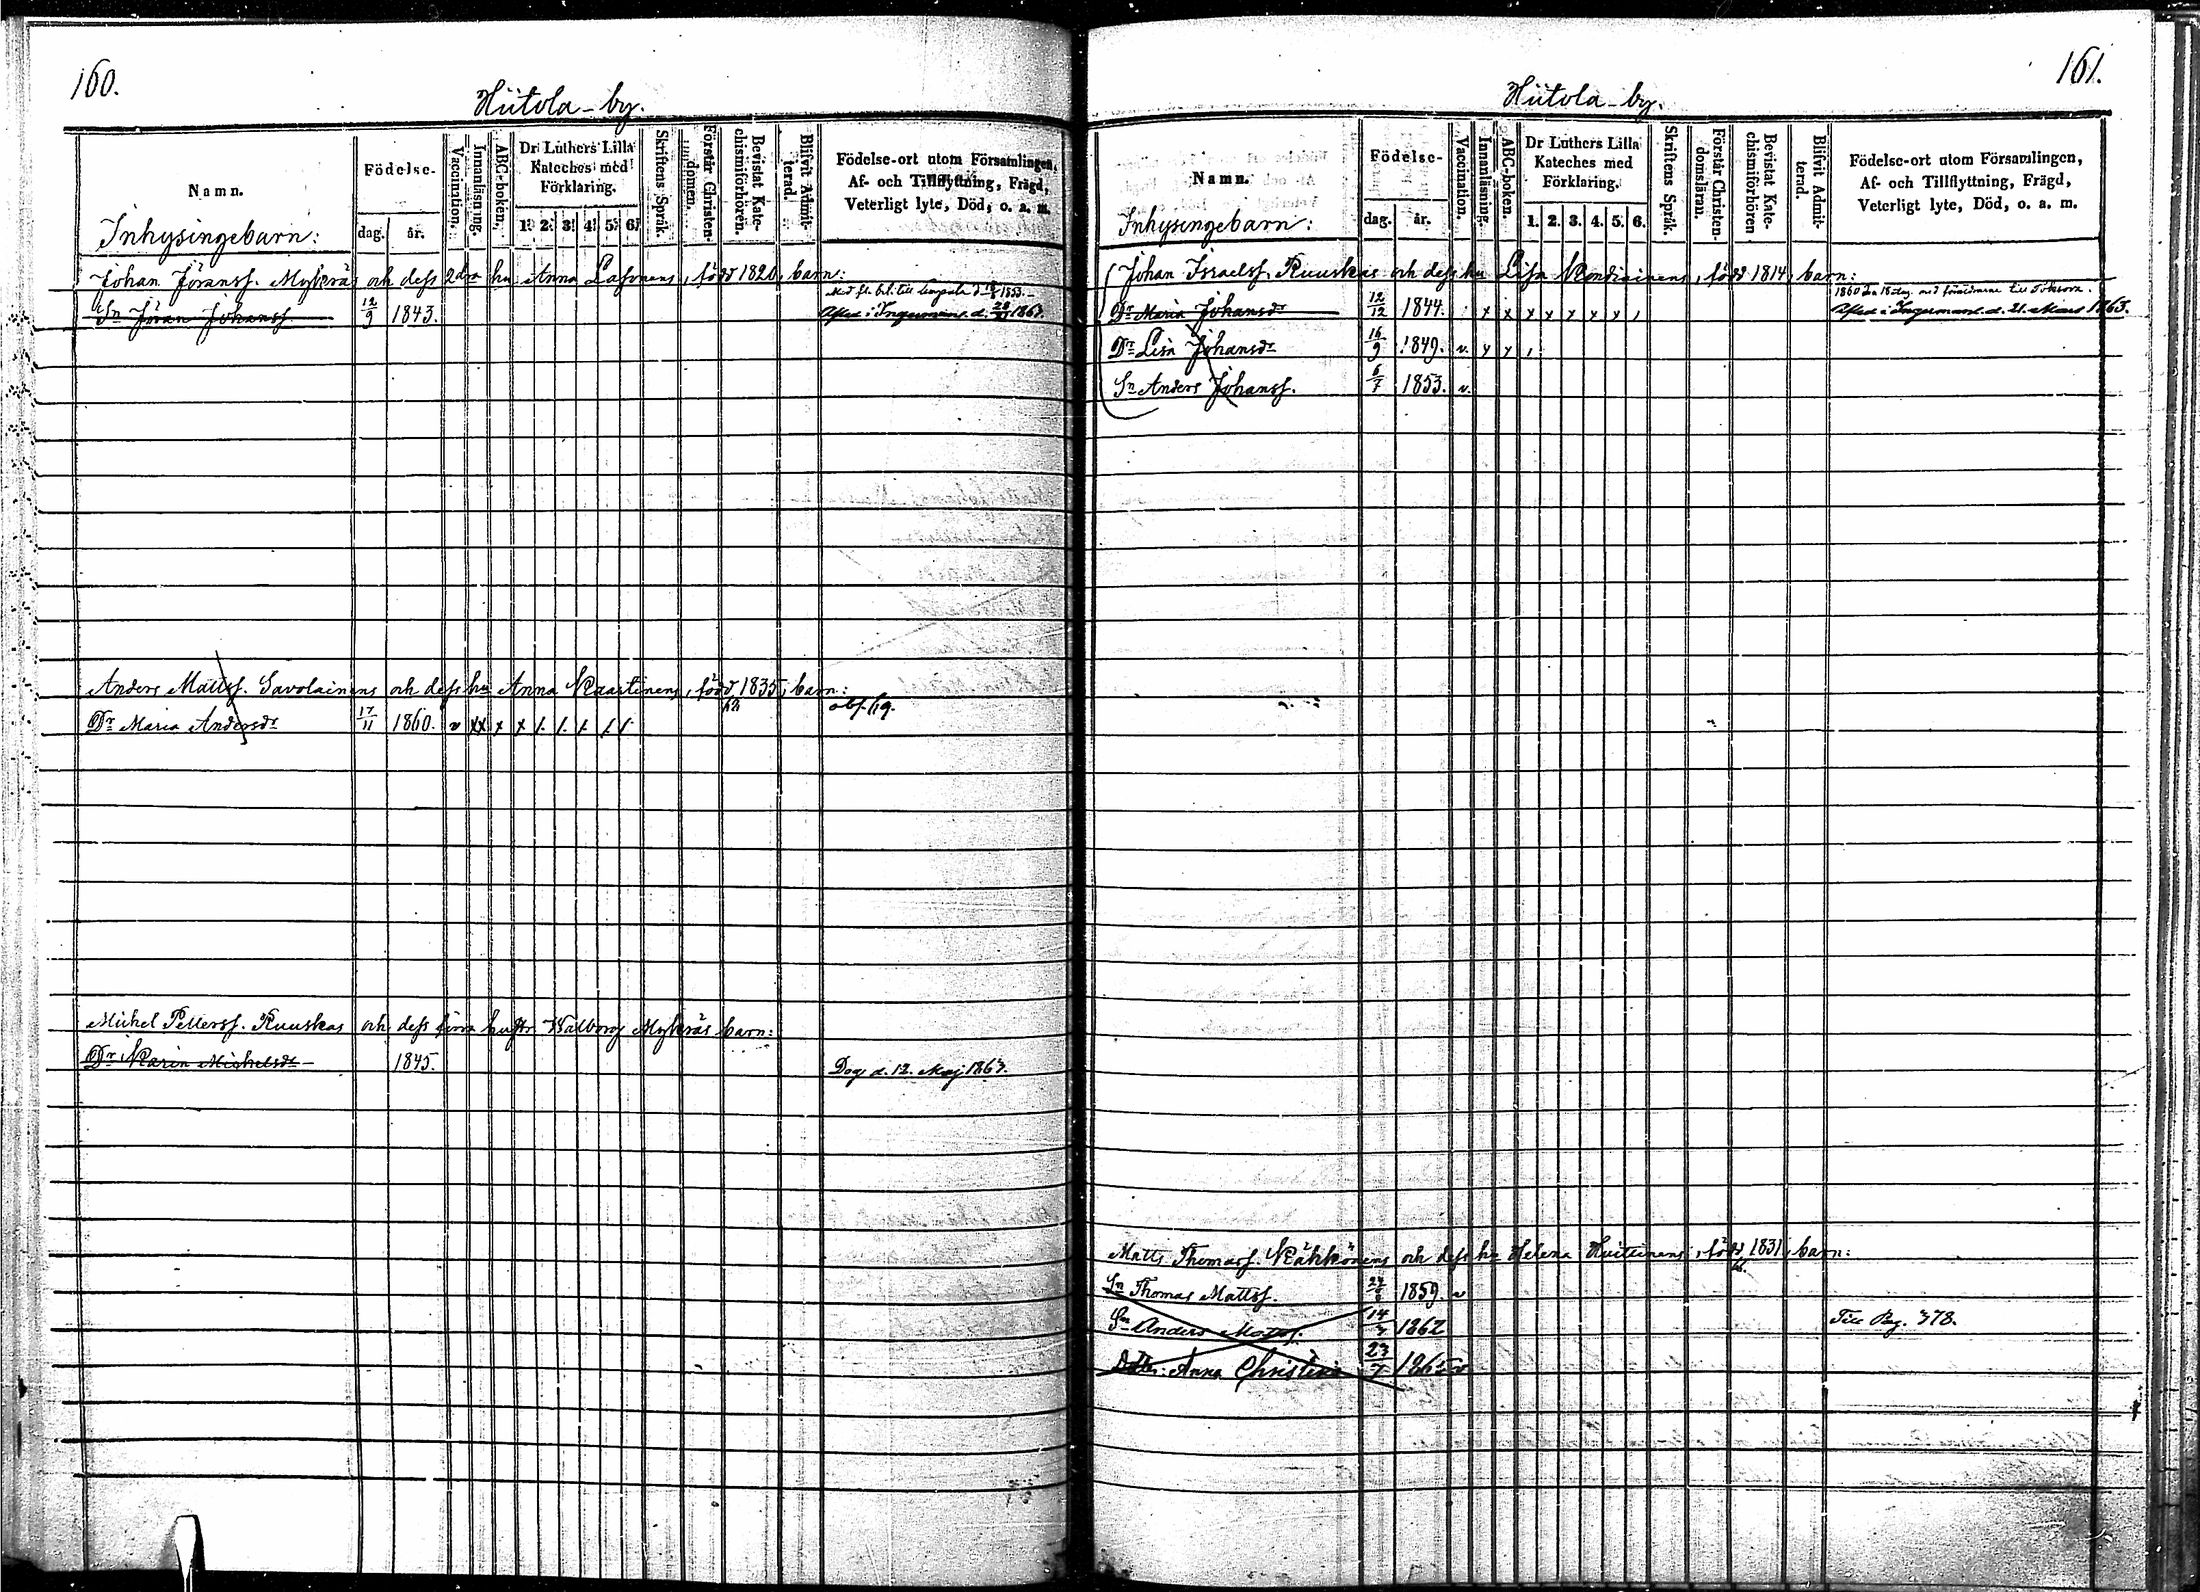 160.
Hiitola - by.
Namn.
Födelse-
dag.
år.
Vaccination.
Innanläsning.
ABC-boken.
Dr Luthers Lilla
Kateches med
Förklaring.
1. 2. 3. 4. 5. 6.
Skriftens Språk.
Förstår Christen-
domen.
Bevistat Kate-
chismiförhören.
Blifvit Admit-
terad.
Födelse-ort utom Församlingen,
Af- och Tillflyttning, Frägd,
Veterligt lyte, Död, o. a. m.
Inhysingebarn:
Johan Föranss. Mykräs och dess 2dra hu Anna Lasonens, född 1820, barn:
Sn Jöran Johanss 12/9 1843. 1853. Afled i Ingermanl. d. 1863.
Anders Matts. Savolainens och dess hu Anna Naastinens, född 1835, barn:
Dr Maria Andersdr 17/11 1860. v xx x x
Michel Petterss. Ruuskas och dess förra hustr Walborg Mykräs barn:
Dr Karin Michelsdr 1845. Dog d. 12. Maj 1863.
161.
Hiitola - by.
Namn.
Födelse-
dag.
år.
Vaccination.
Innanläsning.
ABC-boken.
Dr Luthers Lilla
Kateches med
Förklaring.
1. 2. 3. 4. 5. 6.
Skriftens Språk.
Förstår Christen-
domsläran.
Bevistat Kate-
chismiförhören
Blifvit Admit-
terad.
Födelse-ort utom Församlingen,
Af- och Tillflyttning, Frägd,
Veterligt lyte, Död, o. a. m.
Inhysingebarn:
Johan Israelss. Ruuskas och dess hu Lisa Kondiainens, född 1814, barn:
1860 med föräldrarne till
Dr Maria Johansdr 12/12 1844. x x x x x x x Afled i Ingermanl. d. 21. Mars 1863.
Dr Lisa Johansdr 16/9 1849. v. x x
Sn Anders Johanss. 6/7 1853. v.
Matts Thomass. Käkkönens och dess hu Helena Huitinens, född 1831, barn:
Sn Thomas Mattss. 1859. v
Sn Anders Mattss. 1862 Till Pag. 378.
Anna Christina 23/7 1865 v